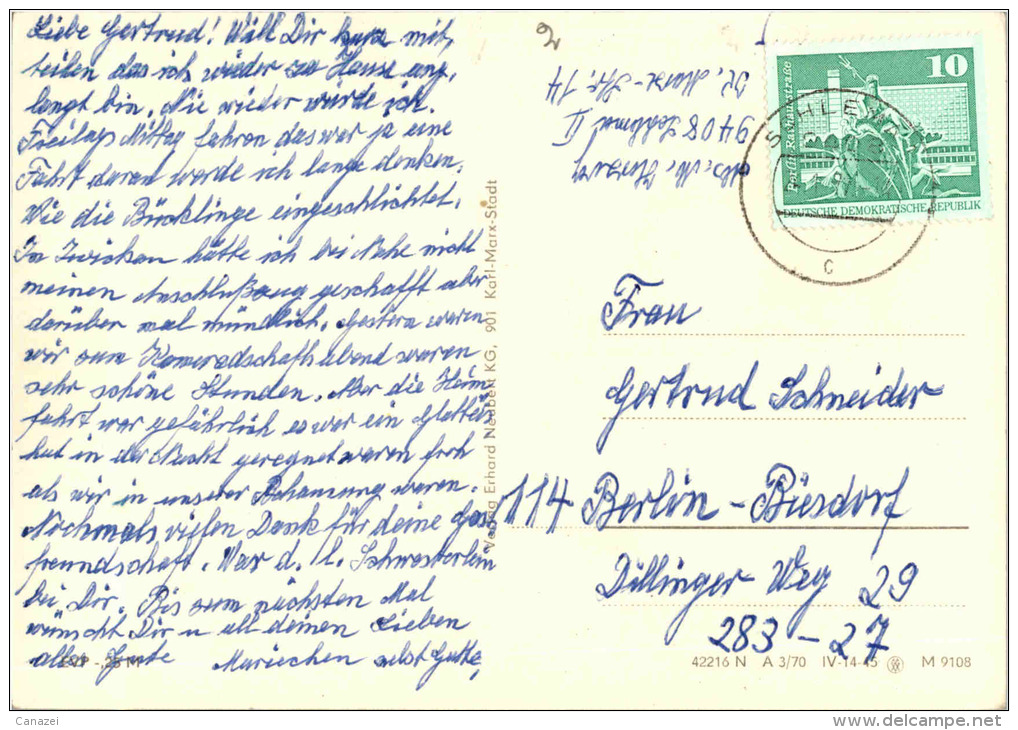 Liebe Gertrud! Will Dir kurz mit,
teilen das ich wieder zu Hause ang,
langt bin. Nie wieder würde ich
Freitags Mittag fahren das war ja eine
Fahrt daran werde ich lange denken.
Wie die Bücklinge eingeschlichtet.
In Zwickau hätte ich bei Nahe nicht
meinen Anschlußzug geschafft aber
darüber mal mündlich. Gestern waren
wir zum Kameradschaftsabend waren
sehr schöne Stunden. Aber die Heim
fahrt war gefährlich es war ein Glatteis
hat in der Nacht geregnet waren froh
als wir in unserer Behausung waren.
Nochmals vielen Dank für deine Gas
freundschaft. War d. l. Schwesterlein
bei Dir. Bis zum nächsten Mal
wünscht Dir u all deinen Lieben
alles Gute Mariechen nebst Gatte,
Verlag Erhard Neubert KG, 901 Karl-Marx-Stadt
2
Abs. M.
9408 Schlema II
Dr. Marx-Str. 14
10
Berlin Rathausstraße
DEUTSCHE DEMOKRATISCHE REPUBLIK
SCHLEMA
c
Frau
Gertrud Schneider
114 Berlin-Biesdorf
Dillinger Weg 29
283-27
42216 N A 3/70 IV-14-45 M 9108
Canazei
www.delcampe.net